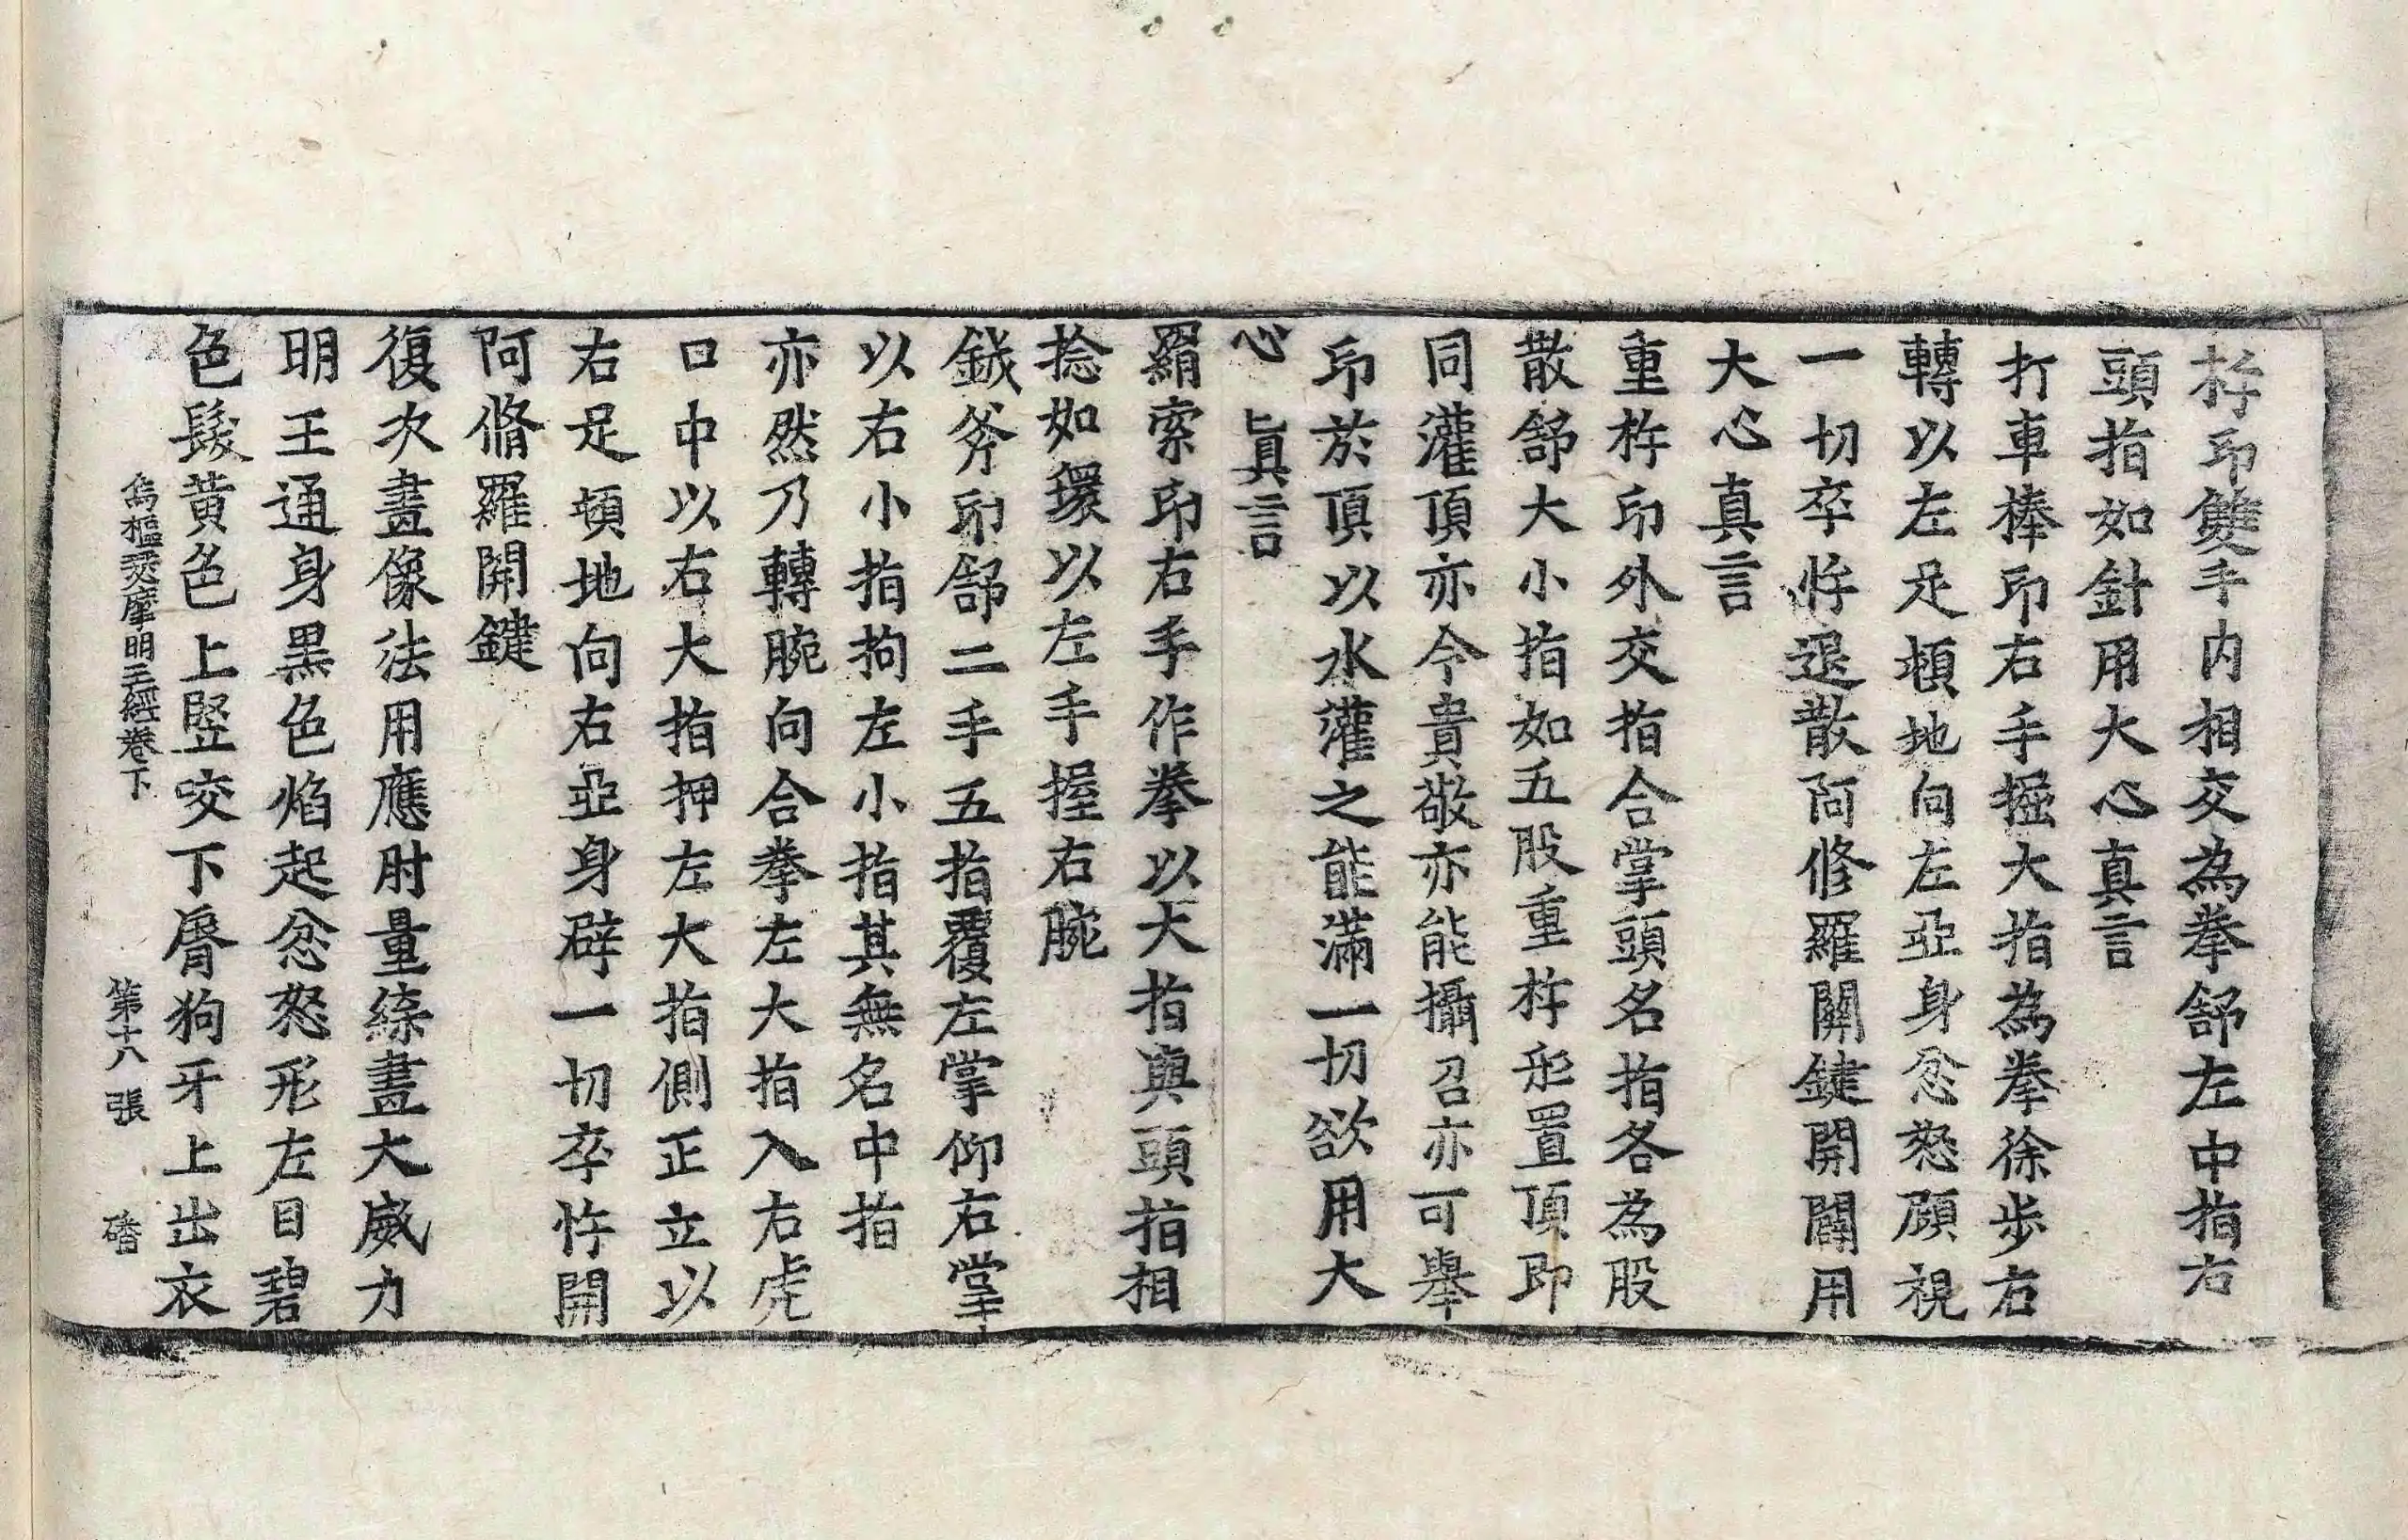 杵印雙手内相交為拳舒左中指右
頭指如針用大心真言
打車棒印右手握大指為拳徐步右
轉以左足頓地向左亞身忿怒顧視
一切卒忤退散阿修羅關鍵開闢用
大心真言
重杵印外交指合掌頭名指各為股
散舒大小指如五股重杵形置頂即
同灌頂亦令貴敬亦能攝召亦可舉
印於頂以水灌之能滿一切欲用大
心真言
羂索印右手作拳以大指與頭指相
捻如環以左手握右腕
鉞斧印舒二手五指覆左掌仰右掌
以右小指拘左小指其無名中指
亦然乃轉腕向合拳左大指入右虎
口中以右大指押左大指側正立以
右足頓地向右亞身辟一切卒忤開
阿脩羅開鍵
復次畫像法用應肘量緂畫大威力
明王通身黑色焰起忿怒形左目碧
色髮黄色上竪咬下脣狗牙上出衣
烏樞瑟摩明王經卷下 第十八張 磻